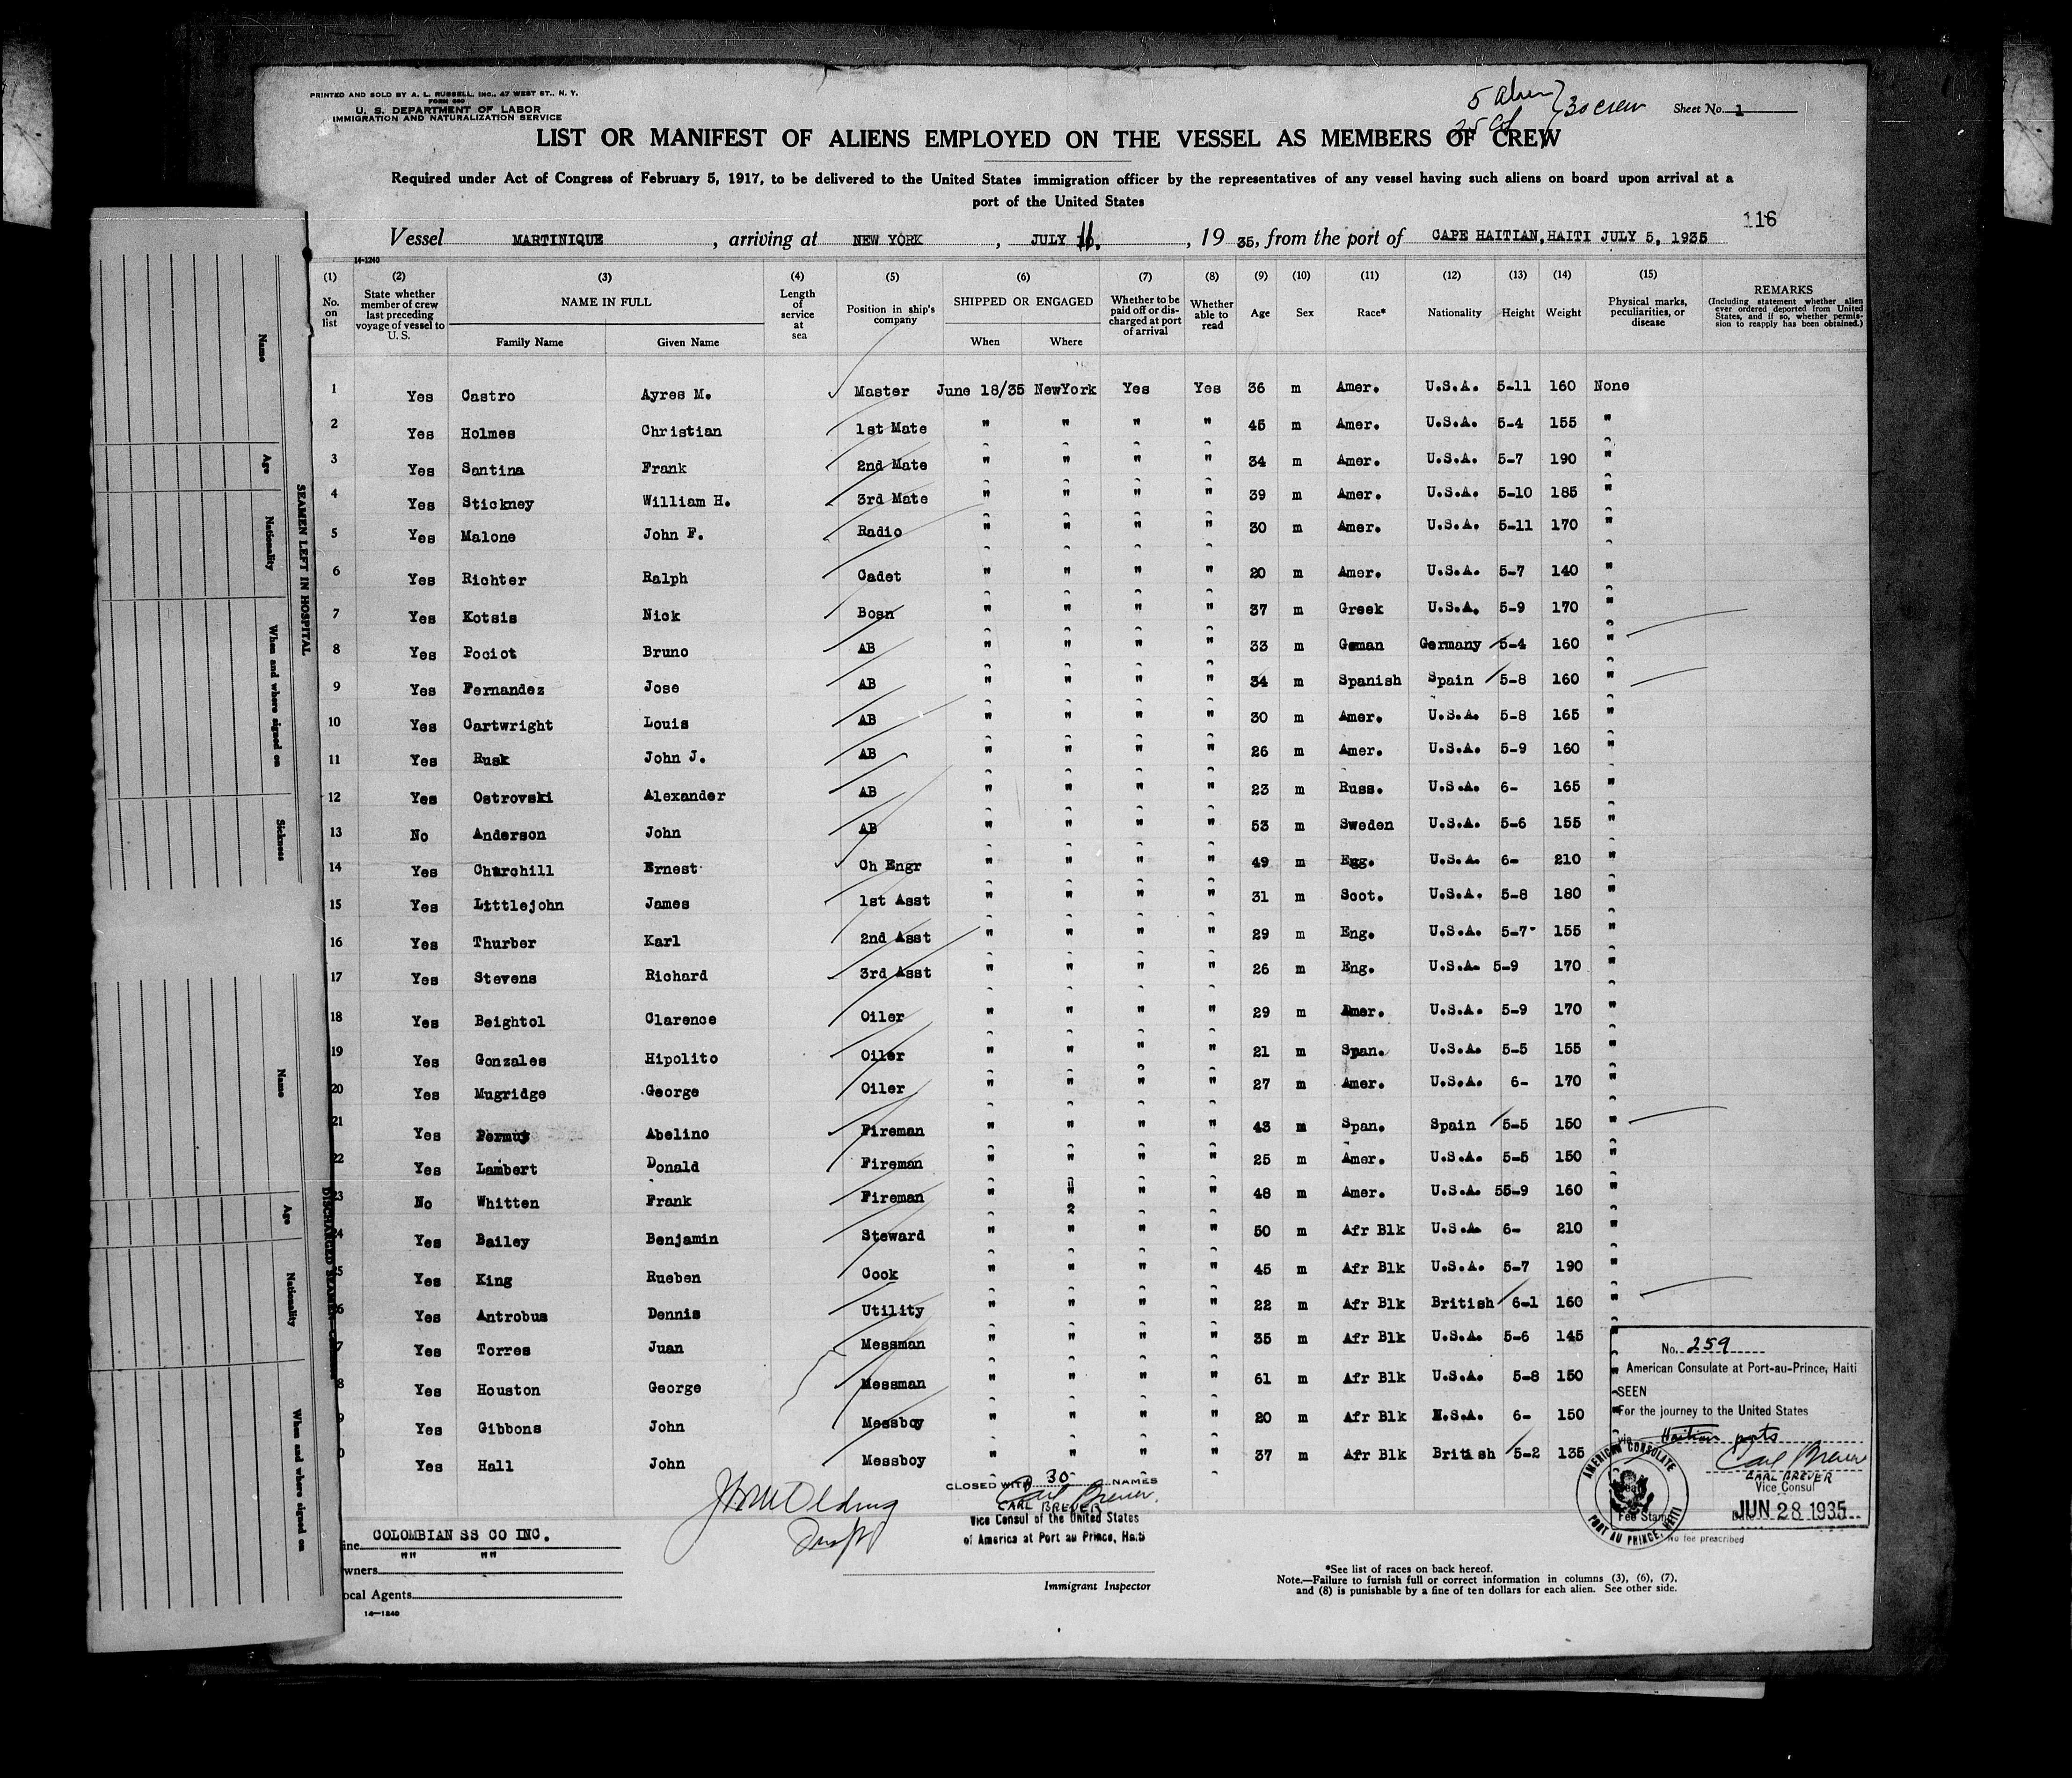 PRINTED AND SOLD BY A. L. RUSSELL, INC., 47 WEST ST., N. Y.
FORM 680
U. S. DEPARTMENT OF LABOR
IMMIGRATION AND NATURALIZATION SERVICE
5 Alien } 30 crew
Sheet No. 1
LIST OR MANIFEST OF ALIENS EMPLOYED ON THE VESSEL AS MEMBERS OF CREW
Required under Act of Congress of February 5, 1917, to be delivered to the United States immigration officer by the representatives of any vessel having such aliens on board upon arrival at a
port of the United States
116
Vessel MARTINIQUE, arriving at NEW YORK, JULY 11, 1935, from the port of CAPE HAITIAN, HAITI JULY 5, 1935
14-1240
(1) (2) (3) (4) (5) (6) (7) (8) (9) (10) (11) (12) (13) (14) (15)
No. on list | State whether member of crew last preceding voyage of vessel to U. S. | NAME IN FULL Family Name Given Name | Length of service at sea | Position in ship's company | SHIPPED OR ENGAGED When Where | Whether to be paid off or discharged at port of arrival | Whether able to read | Age | Sex | Race* | Nationality | Height | Weight | Physical marks, peculiarities, or disease | REMARKS (Including statement whether alien ever ordered deported from United States, and if so, whether permission to reapply has been obtained.)
1 Yes Castro Ayres M. Master June 18/35 NewYork Yes Yes 36 m Amer. U.S.A. 5-11 160 None
2 Yes Holmes Christian 1st Mate " " " " 45 m Amer. U.S.A. 5-4 155 "
3 Yes Santina Frank 2nd Mate " " " " 34 m Amer. U.S.A. 5-7 190 "
4 Yes Stickney William H. 3rd Mate " " " " 39 m Amer. U.S.A. 5-10 185 "
5 Yes Malone John F. Radio " " " " 30 m Amer. U.S.A. 5-11 170 "
6 Yes Richter Ralph Cadet " " " " 20 m Amer. U.S.A. 5-7 140 "
7 Yes Kotsis Nick Bosn " " " " 37 m Greek U.S.A. 5-9 170 "
8 Yes Pociot Bruno AB " " " " 33 m Geman Germany 5-4 160 "
9 Yes Fernandez Jose AB " " " " 34 m Spanish Spain 5-8 160 "
10 Yes Cartwright Louis AB " " " " 30 m Amer. U.S.A. 5-8 165 "
11 Yes Rusk John J. AB " " " " 26 m Amer. U.S.A. 5-9 160 "
12 Yes Ostrovski Alexander AB " " " " 23 m Russ. U.S.A. 6- 165 "
13 No Anderson John AB " " " " 53 m Sweden U.S.A. 5-6 155 "
14 Yes Churchill Ernest Ch Engr " " " " 49 m Eng. U.S.A. 6- 210 "
15 Yes Littlejohn James 1st Asst " " " " 31 m Scot. U.S.A. 5-8 180 "
16 Yes Thurber Karl 2nd Asst " " " " 29 m Eng. U.S.A. 5-7 155 "
17 Yes Stevens Richard 3rd Asst " " " " 26 m Eng. U.S.A. 5-9 170 "
18 Yes Beightol Clarence Oiler " " " " 29 m Amer. U.S.A. 5-9 170 "
19 Yes Gonzales Hipolito Oiler " " " " 21 m Span. U.S.A. 5-5 155 "
20 Yes Mugridge George Oiler " " " " 27 m Amer. U.S.A. 6- 170 "
21 Yes Permuy Abelino Fireman " " " " 43 m Span. Spain 5-5 150 "
22 Yes Lambert Donald Fireman " " " " 25 m Amer. U.S.A. 5-5 150 "
23 No Whitten Frank Fireman " " " " 48 m Amer. U.S.A. 55-9 160 "
24 Yes Bailey Benjamin Steward " " " " 50 m Afr Blk U.S.A. 6- 210 "
25 Yes King Rueben Cook " " " " 45 m Afr Blk U.S.A. 5-7 190 "
6 Yes Antrobus Dennis Utility " " " " 22 m Afr Blk British 6-1 160 "
7 Yes Torres Juan Messman " " " " 35 m Afr Blk U.S.A. 5-6 145 "
8 Yes Houston George Messman " " " " 61 m Afr Blk U.S.A. 5-8 150 "
9 Yes Gibbons John Messboy " " " " 20 m Afr Blk U.S.A. 6- 150 "
0 Yes Hall John Messboy " " " " 37 m Afr Blk British 5-2 135 "
No. 259
American Consulate at Port-au-Prince, Haiti
SEEN
For the journey to the United States
via Haitian ports
Carl Brever
CARL BREVER
Vice Consul
JUN 28 1935
Fee Stamp
No fee prescribed
AMERICAN CONSULATE
PORT AU PRINCE, HAITI
CLOSED WITH 30 NAMES
Carl Brever
CARL BREVER
Vice Consul of the United States
of America at Port au Prince, Haiti
Immigrant Inspector
ine COLOMBIAN SS CO INC.
wners "" ""
ocal Agents
14-1240
*See list of races on back hereof.
Note.—Failure to furnish full or correct information in columns (3), (6), (7),
and (8) is punishable by a fine of ten dollars for each alien. See other side.
SEAMEN LEFT IN HOSPITAL
Name
Age
Nationality
When and where signed on
Sickness
DISCHARGED SEAMEN
Name
Age
Nationality
When and where signed on